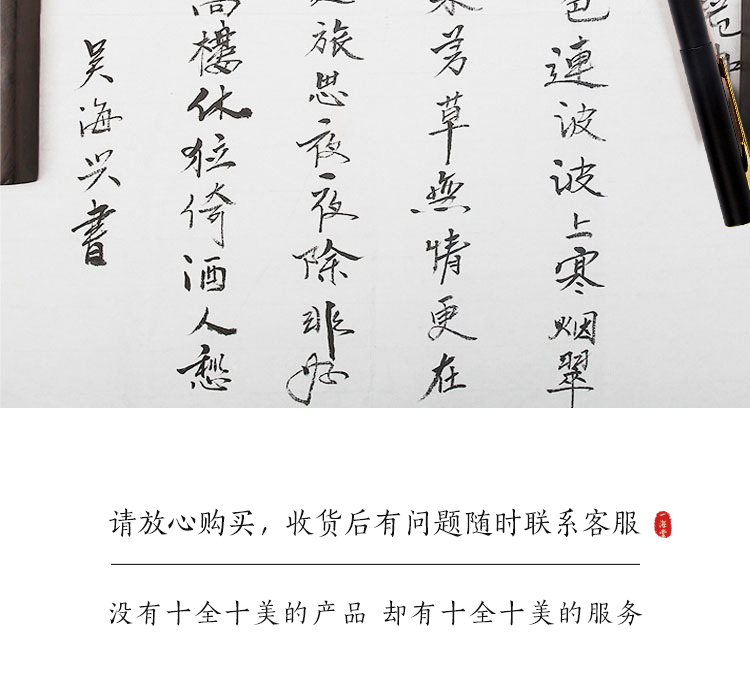 色連波波上寒烟翠
芳草無情更在
旅思夜夜除非好
高樓休独倚酒入愁
吴海兴書
请放心购买，收货后有问题随时联系客服
没有十全十美的产品 却有十全十美的服务